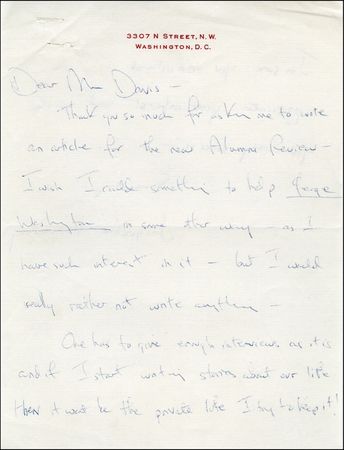 3307 N STREET, N.W.
WASHINGTON, D.C.
Dear Mr Davis —
Thank you so much for asking me to write
an article for the new Alumni Review —
I wish I could do something to help George
Washington in some other way — as I
have such interest in it — but I would
really rather not write anything —
One has to give enough interviews as it is
and if I start writing stories about our life
then it wont be the private life I try to keep it!